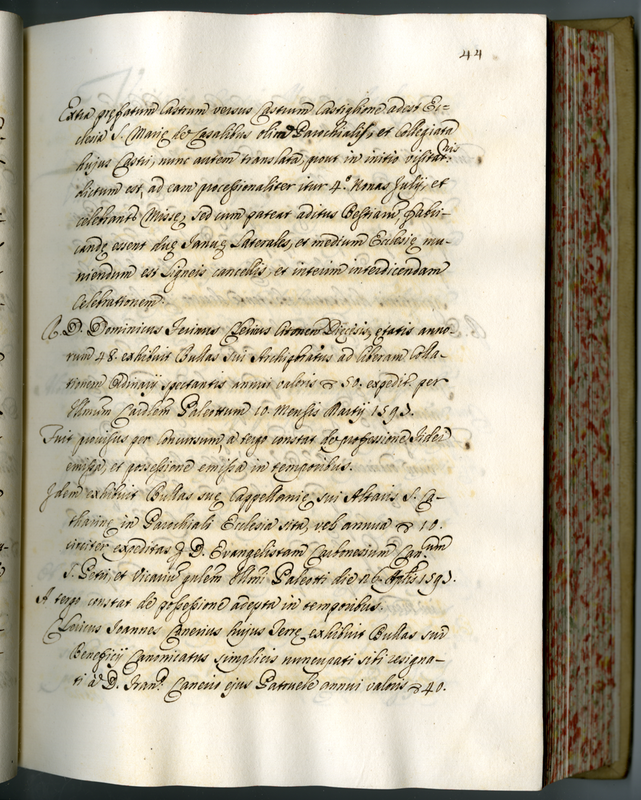 44
Extra prefatum Castrum versus Castrum Castiglione adest Ec-
clesia S. Marie de Casalibus olim Parochialis, et Collegiata
hujus Castri, nunc autem translata, prout in initio visitat.nis
dictum est, ad eam processionaliter itur 4.º Nonas Julij, et
celebrantr Misse, sed cum pateat aditus Bestiarum, fabri-
cande essent due Janue laterales, et medium Ecclesie mu-
niendum est ligneis cancellis, et interim interdicendam
Celebrationem.
R. D. Dominicus Diecesis, etatis anno-
rum 48. exhibuit Bullas sui Archipbratus ad liberam Colla-
tionem Ordinarij spectantis annui valoris 50. expedit. per
Illmum Cardlem Paleottum 10. Mensis Martij 1593.
Fuit provisus per Concursum, a tergo constat de professione fidei
emissa, et possessione emissa in temporibus.
Idem exhibuit Bullas sue Cappellanie, sui Altaris S. Ca-
tharine in Parochiali Ecclesia sita, vel. annua 10.
circiter expeditas p. D. Evangelistam Carbonesium Can.cum
S. Petri, et Vicarium gnlem Illmi Paleotti die 26. 1593.
A tergo constat de possessione adepta in temporibus.
Clericus Joannes Canevius hujus Terre exhibuit Bullas sui
Beneficij Canonicatus simplicis nuncupati sibi resigna-
ti à D. Fran.º Canevio ejus Patruele annui valoris 40.